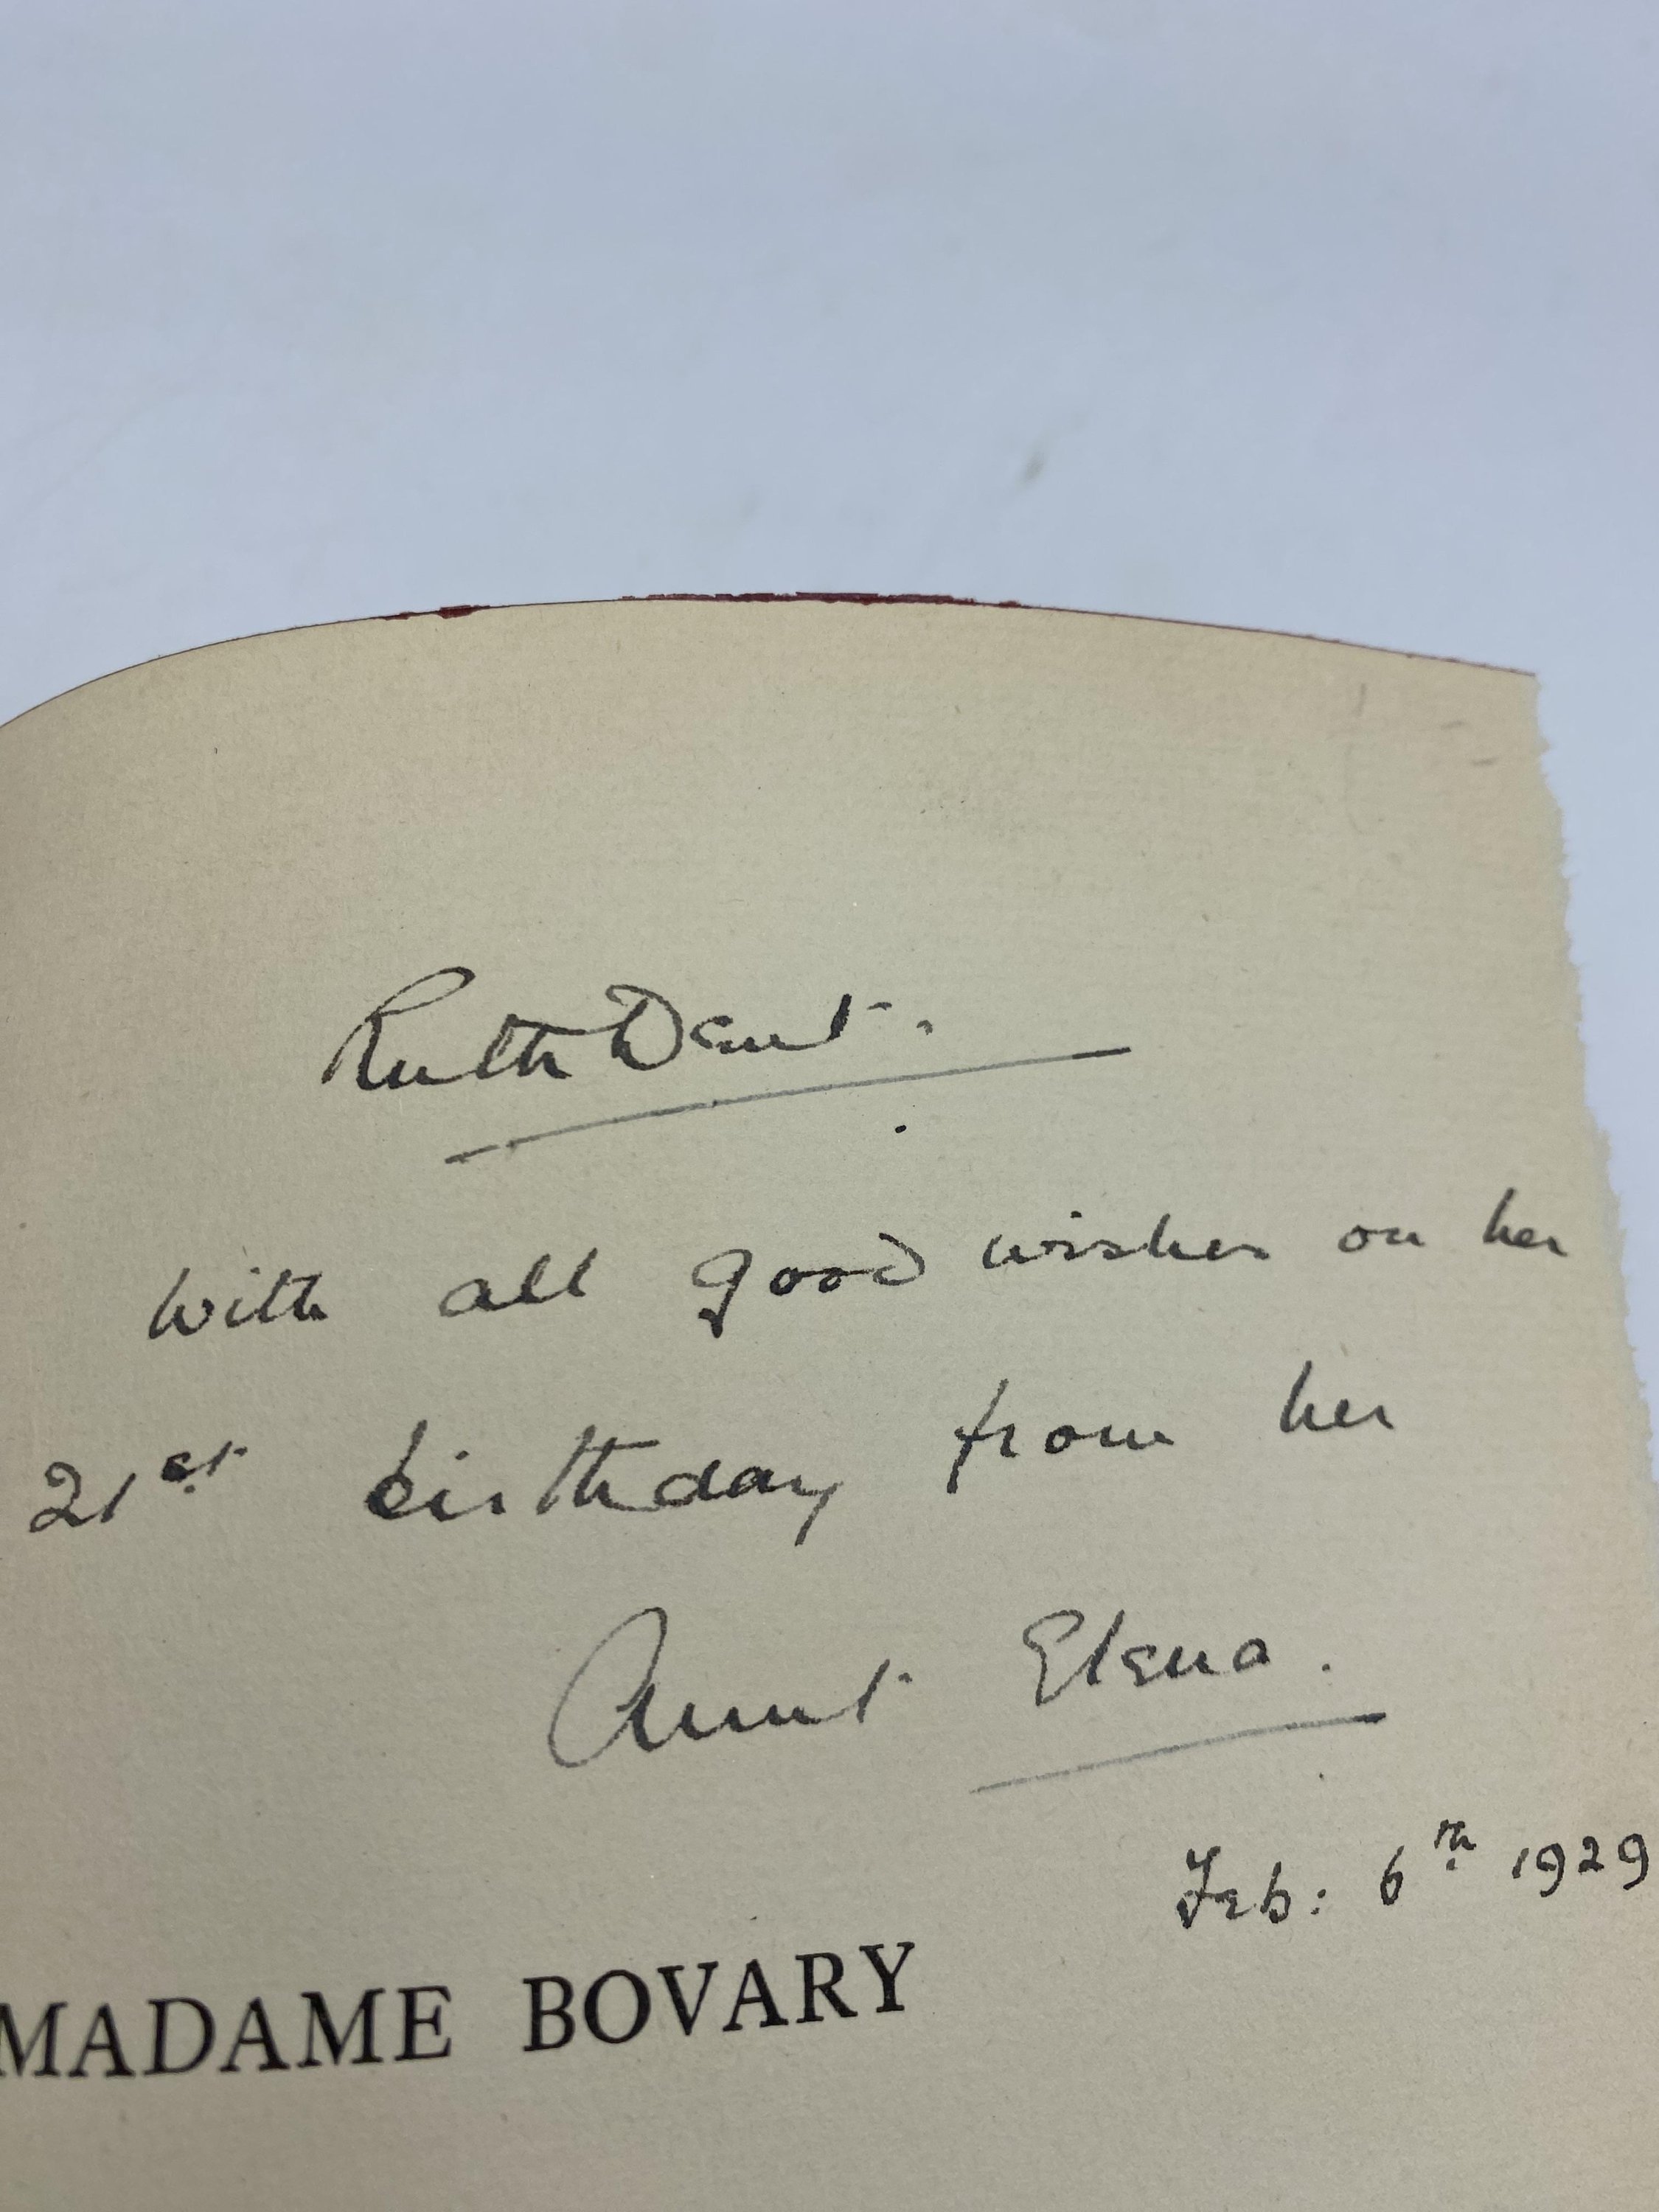 Ruth Dent.
With all good wishes on her
21st birthday from her
Aunt Elena.
Feb: 6th 1929
MADAME BOVARY